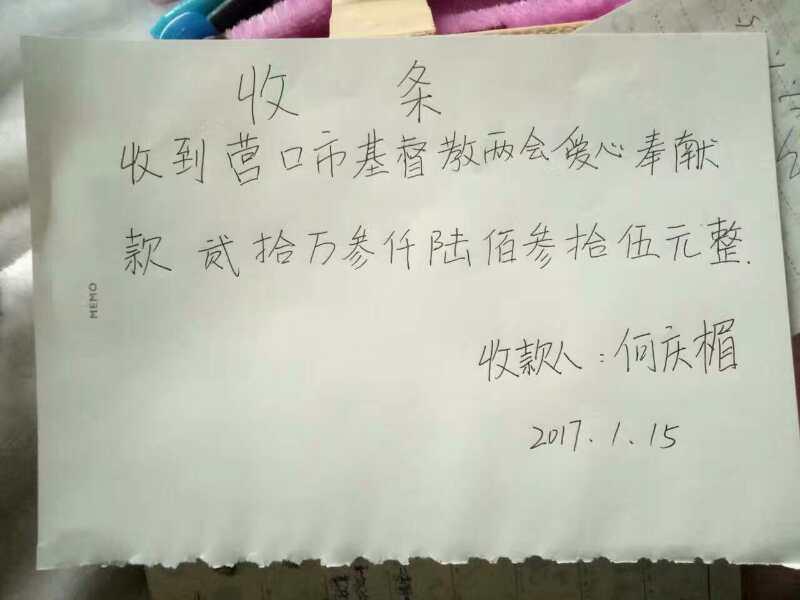 收 条
收到营口市基督教两会爱心奉献
款 贰拾万参仟陆佰参拾伍元整.
收款人：何庆楣
2017.1.15
MEMO